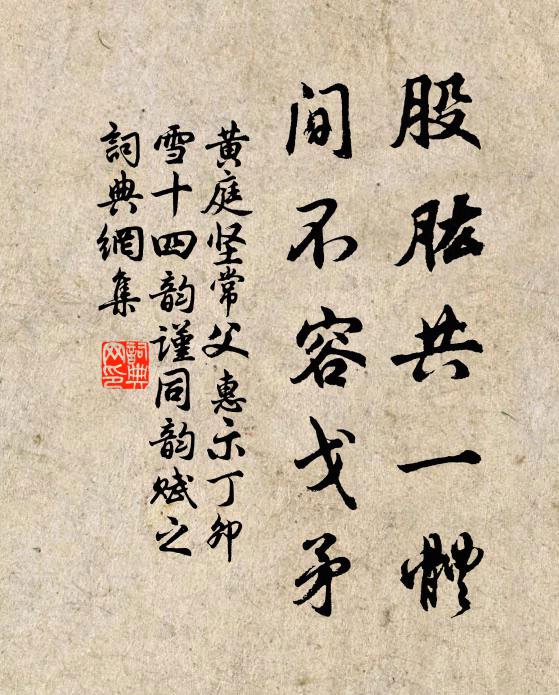 股肱共一體
間不容戈矛
黄庭坚常父惠示丁卯
雪十四韵謹同韵赋之
詞典網集
詞典
网印